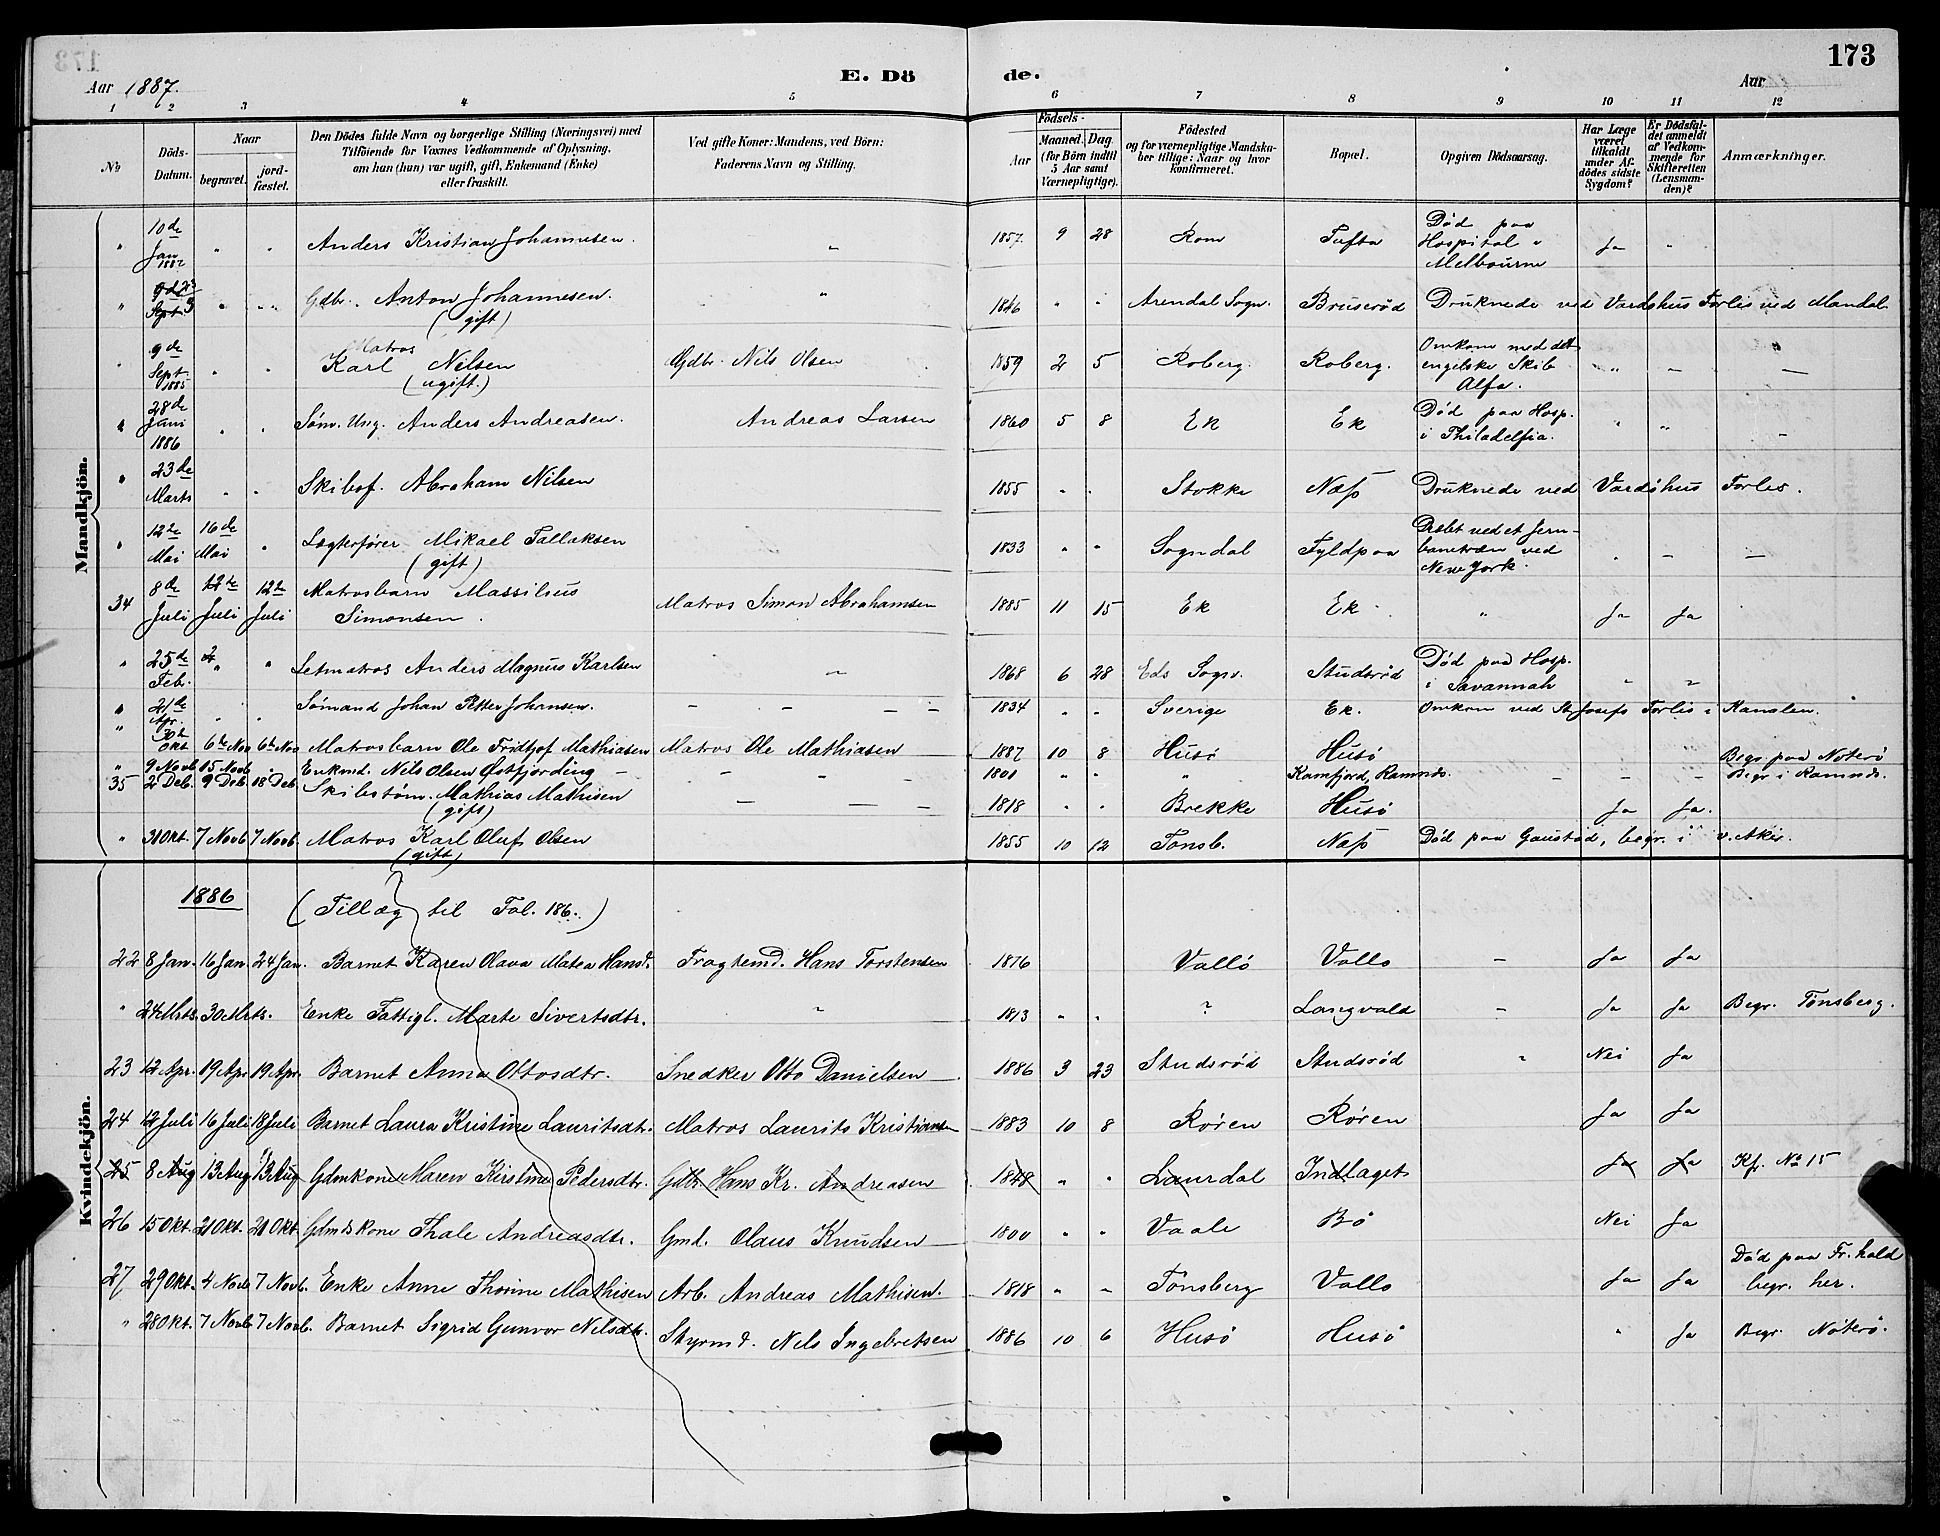 173
Aar 1887. E. Dö de. Aar
1 2 3 4 5 6 7 8 9 10 11 12
No
Döds-Datum.
Naar
begravet.
jord-fæstet.
Den Dödes fulde Navn og borgerlige Stilling (Næringsvei) med
Tilföiende for Voxnes Vedkommende af Oplysning,
om han (hun) var ugift, gift, Enkemand (Enke)
eller fraskilt.
Ved gifte Koner: Mandens, ved Börn:
Faderens Navn og Stilling.
Födsels-
Aar
Maaned. Dag.
(for Börn indtil
5 Aar samt
Værnepligtige).
Födested
og for værnepligtige Mandska-
ber tillige: Naar og hvor
konfirmeret.
Bopæl.
Opgiven Dödsaarsag.
Har Læge
været
tilkaldt
under Af-
dödes sidste
Sygdom?
Er Dödsfal-
det anmeldt
af Vedkom-
mende for
Skifteretten
(Lensman-
den)?
Anmærkninger.
Mandkjön.
" 10de Jan 1887 " " Anders Kristian Johannesen. " 1857. 9 28 Rom Tufta Død paa Hospital " Melbourne Ja "
" Sept. " " Gdbr. Anton Johannesen. (gift) " 1846 " " Arendal Sogn. Bruserød Druknede ved Vardøhus Forlis ved Mandal
" 9de Sept. 1885 " " Matros Karl Nilsen (ugift.) Gdbr. Nils Olsen 1859 2 5 Roberg. Roberg. Omkom med det engelske Skib Alfa. " — —
" 28de Juni 1886 " " Sønv. Ung. Anders Andreasen. Andreas Larsen 1860 5 8 Ek Ek Død paa Hosp. i Philadelfia. " " -
" 23de Marts " " Skibsf. Abraham Nilsen 1855 " " Stokke Næs Druknede ved Vardøhus Forlis.
" 12te Mai 16de Mai " Lægterfører Mikael Tallaksen (gift) 1833 " " Sogndal Fyldpaa Dræbt ved et Jern-banetræn ved New York. " — —
34 8de Juli 12te Juli 12te Juli Matrosbarn Massilius Simonsen. Matros Simon Abrahamsen 1885 11 15 Ek Ek. " Ja Ja
" 25de Feb. " " Letmatros Anders Magnus Karlsen " 1868 6 28 Eds Sogn. Studsrød Død paa Hosp. i Savannah " "
" 21de Apr. " " Sømand Johan Petter Johansen. — — — — 1834 " " Sverige Ek. Omkom ved St. Josefs Forlis i Kanalen.
" 30te Okt 6te Nov 6te Nov Matrosbarn Ole Fridtjof Mathiasen Matros Ole Mathiasen 1887 10 8 Husø Husø Begr. paa Nøterø
" 9 Novb 15 Novb. " Enkmd. Nils Olsen Østfjording — — — — 1801 " " " Kamfjord, Ramnds. — — — Begr. i Ramnds.
35 2 Deb. 9 Deb. 18 Deb. Skibstøm. Mathias Mathisen (gift) — — — 1818 " " Brekke Husø Ja Ja.
" 31 Okt. 7 Novb. 7 Novb. Matros Karl Oluf Olsen (gift) 1855 10 12 Tønsb. Næs Død paa Gaustad, begr. i v. Aker.
Kvindekjön.
1886 (Tillæg til Fol. 186.)
22 8 Jan. 16 Jan. 24 Jan. Barnet Karen Olava Matea Hansd. Fragtemd. Hans Torstensen 1876 Vallø Vallø — Ja Ja
" 24 Mrts. 30 Mrts. Enke Fattigl. Marte Sivertsdtr. " 1813 " " ? Langvald — Ja Ja Begr. Tønsberg.
23 12 Apr. 19 Apr. 19 Apr. Barnet Anna Ottosdtr. Snedker Otto Danielsen 1886 3 23 Studsrød Studsrød " Nei Ja
24 12 Juli 16 Juli 18 Juli Barnet Laura Kristine Lauritsdtr. Matros Laurits Kristiansen 1883 10 8 Røren Røren Ja Ja
25 8 Aug 13 Aug 13 Aug Gdmkone Maren Kirstine Pedersdtr. Gdbr. Hans Kr. Andreasen 1848 " " Laurdal Indlaget Ja Ja Kfr. No 15
26 15 Okt. 21 Okt. 21 Okt. Gdmdskone Thale Andreasdtr. Gmd. Olaus Knudsen 1800 " " Vaale Bø Nei Ja
27 29 Okt. 4 Novb. 7 Novb. Enke Anne Thorine Mathisen Arb. Andreas Mathisen. 1818 " " Tønsberg Vallø Ja Ja Død paa Fr.hald begr. her.
" 28 Okt. 7 Novb. 7 Novb. Barnet Sigrid Gunvor Nilsdtr. Styrmd. Nils Ingebretsen 1886 10 6 Husø Husø " Ja Begr. Nøterø.